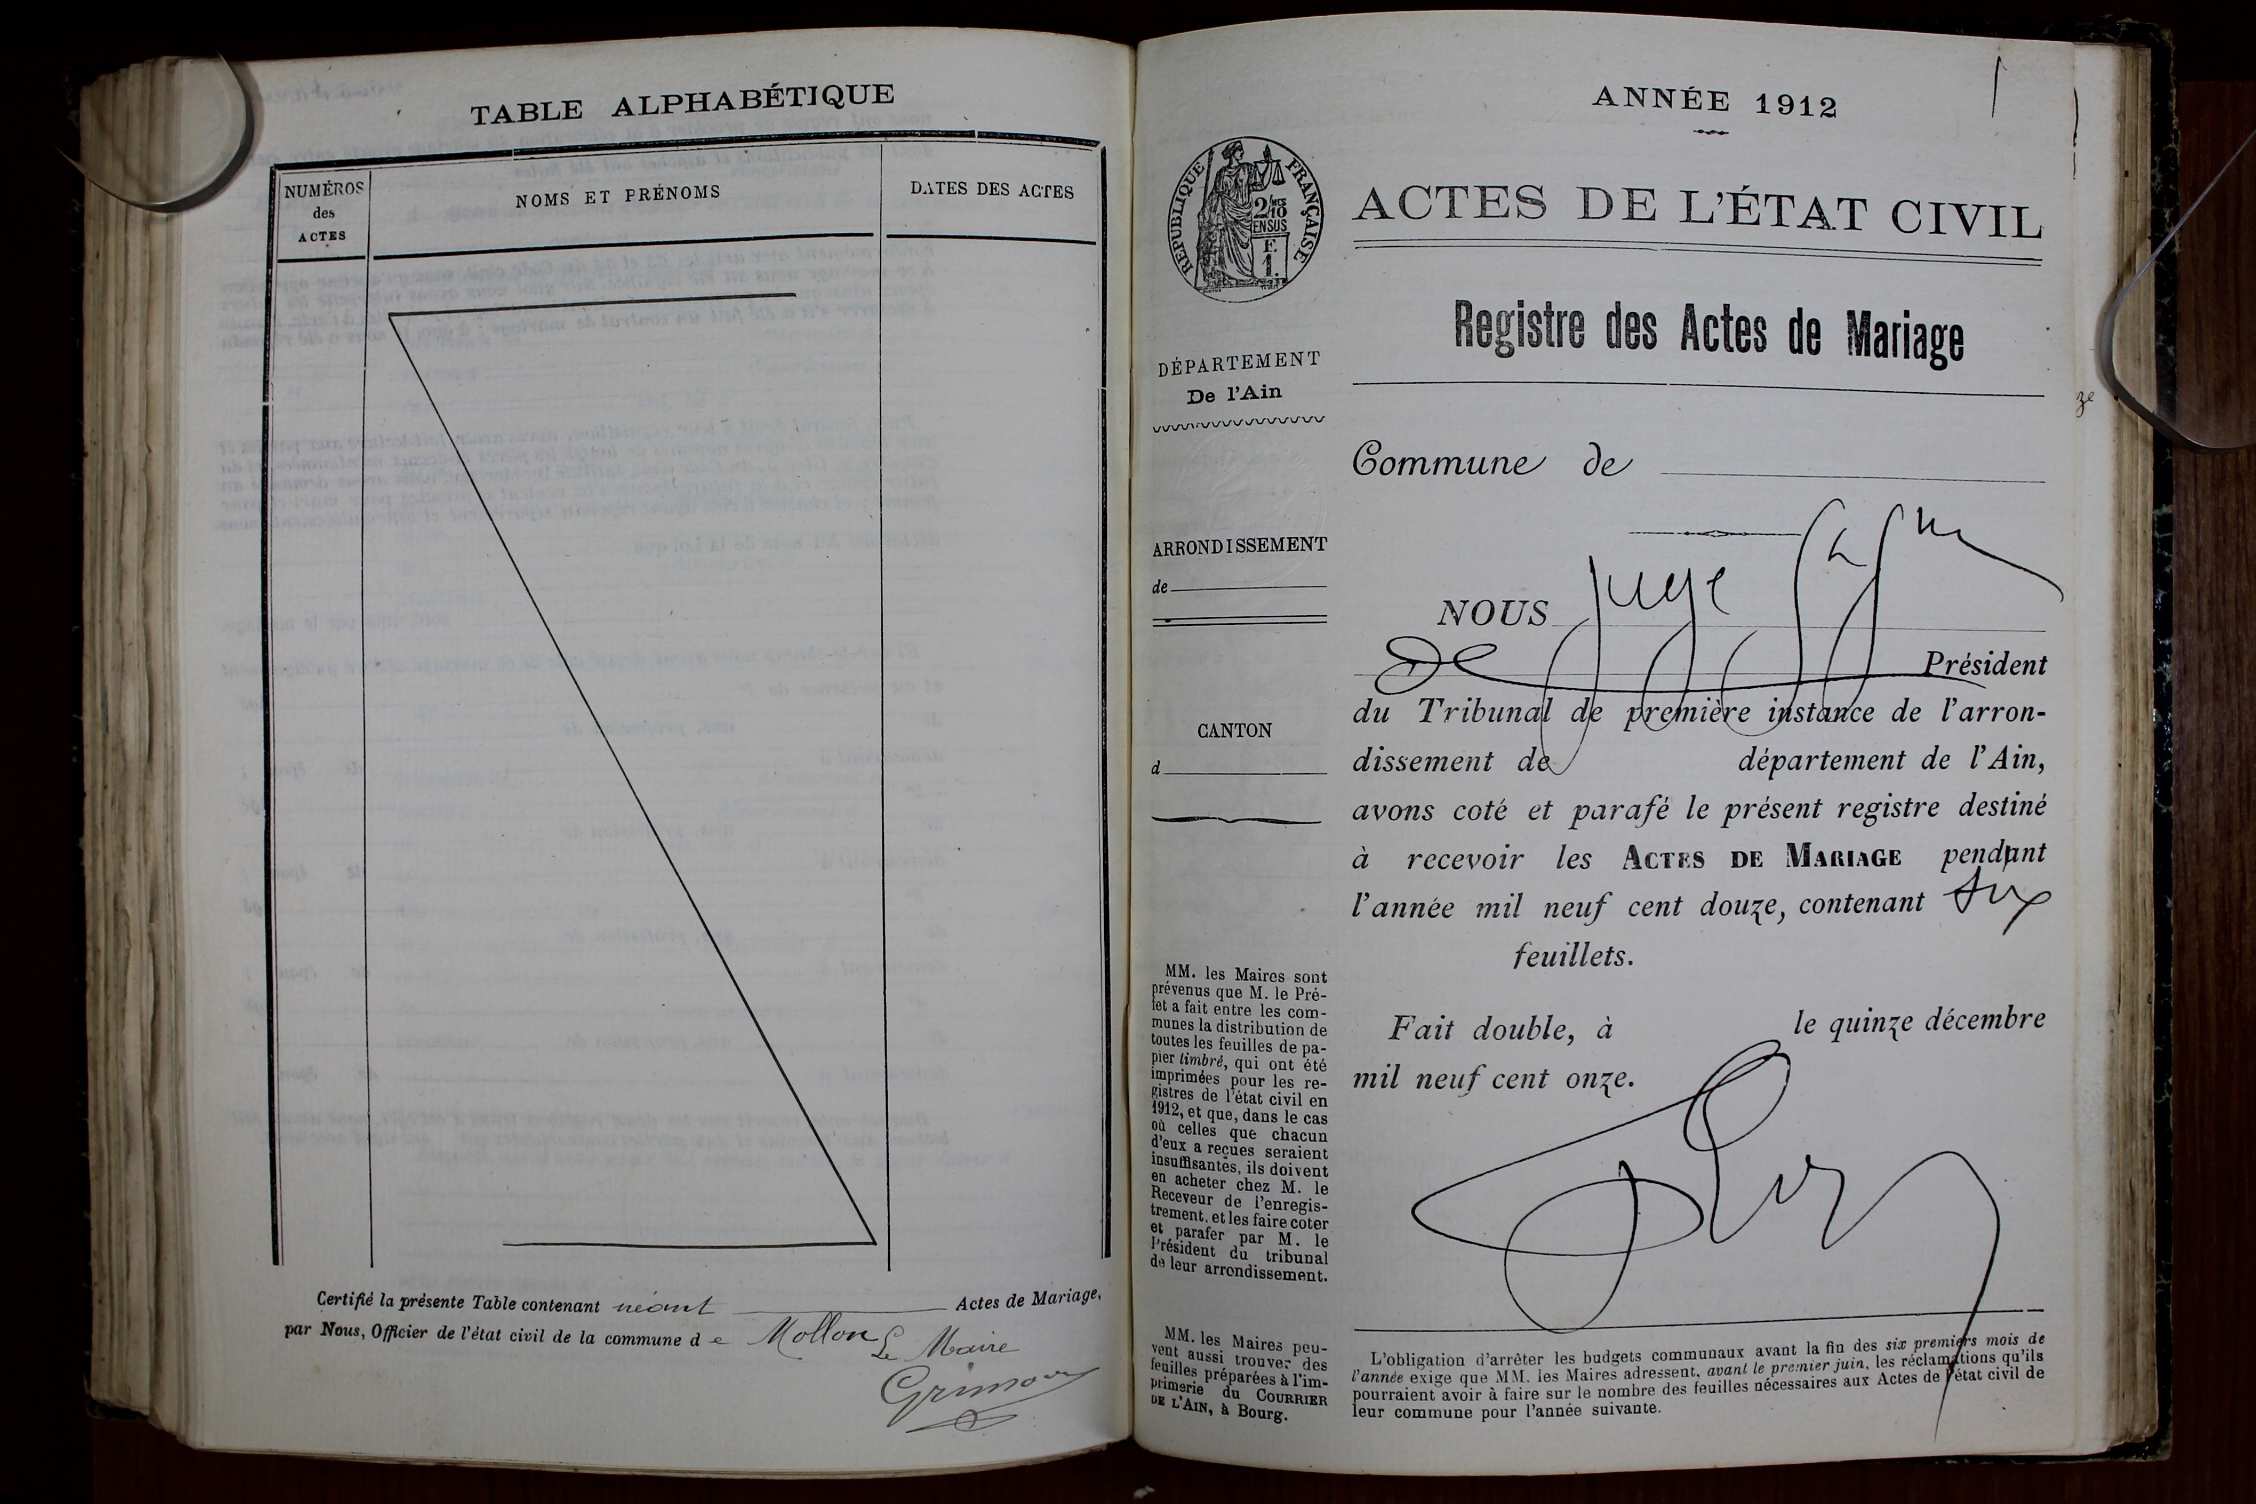 TABLE ALPHABÉTIQUE
NUMÉROS
des
ACTES
NOMS ET PRÉNOMS
DATES DES ACTES
Certifié la présente Table contenant néant Actes de Mariage.
par Nous, Officier de l'état civil de la commune d e Mollon
Le Maire
ANNÉE 1912
RÉPUBLIQUE FRANÇAISE
2/10
EN SUS
F.
1.
ACTES DE L'ÉTAT CIVIL
Registre des Actes de Mariage
DÉPARTEMENT
De l'Ain
Commune de
ARRONDISSEMENT
de
CANTON
d
NOUS Juge
Président
du Tribunal de première instance de l'arron-
dissement de département de l'Ain,
avons coté et parafé le présent registre destiné
à recevoir les ACTES DE MARIAGE pendant
l'année mil neuf cent douze, contenant six
feuillets.
Fait double, à le quinze décembre
mil neuf cent onze.
MM. les Maires sont
prévenus que M. le Pré-
fet a fait entre les com-
munes la distribution de
toutes les feuilles de pa-
pier timbré, qui ont été
imprimées pour les re-
gistres de l'état civil en
1912, et que, dans le cas
où celles que chacun
d'eux a reçues seraient
insuffisantes, ils doivent
en acheter chez M. le
Receveur de l'enregis-
trement, et les faire coter
et parafer par M. le
Président du tribunal
de leur arrondissement.
MM. les Maires peu-
vent aussi trouver des
feuilles préparées à l'im-
primerie du COURRIER
DE L'AIN, à Bourg.
L'obligation d'arrêter les budgets communaux avant la fin des six premiers mois de
l'année exige que MM. les Maires adressent, avant le premier juin, les réclamations qu'ils
pourraient avoir à faire sur le nombre des feuilles nécessaires aux Actes de l'état civil de
leur commune pour l'année suivante.